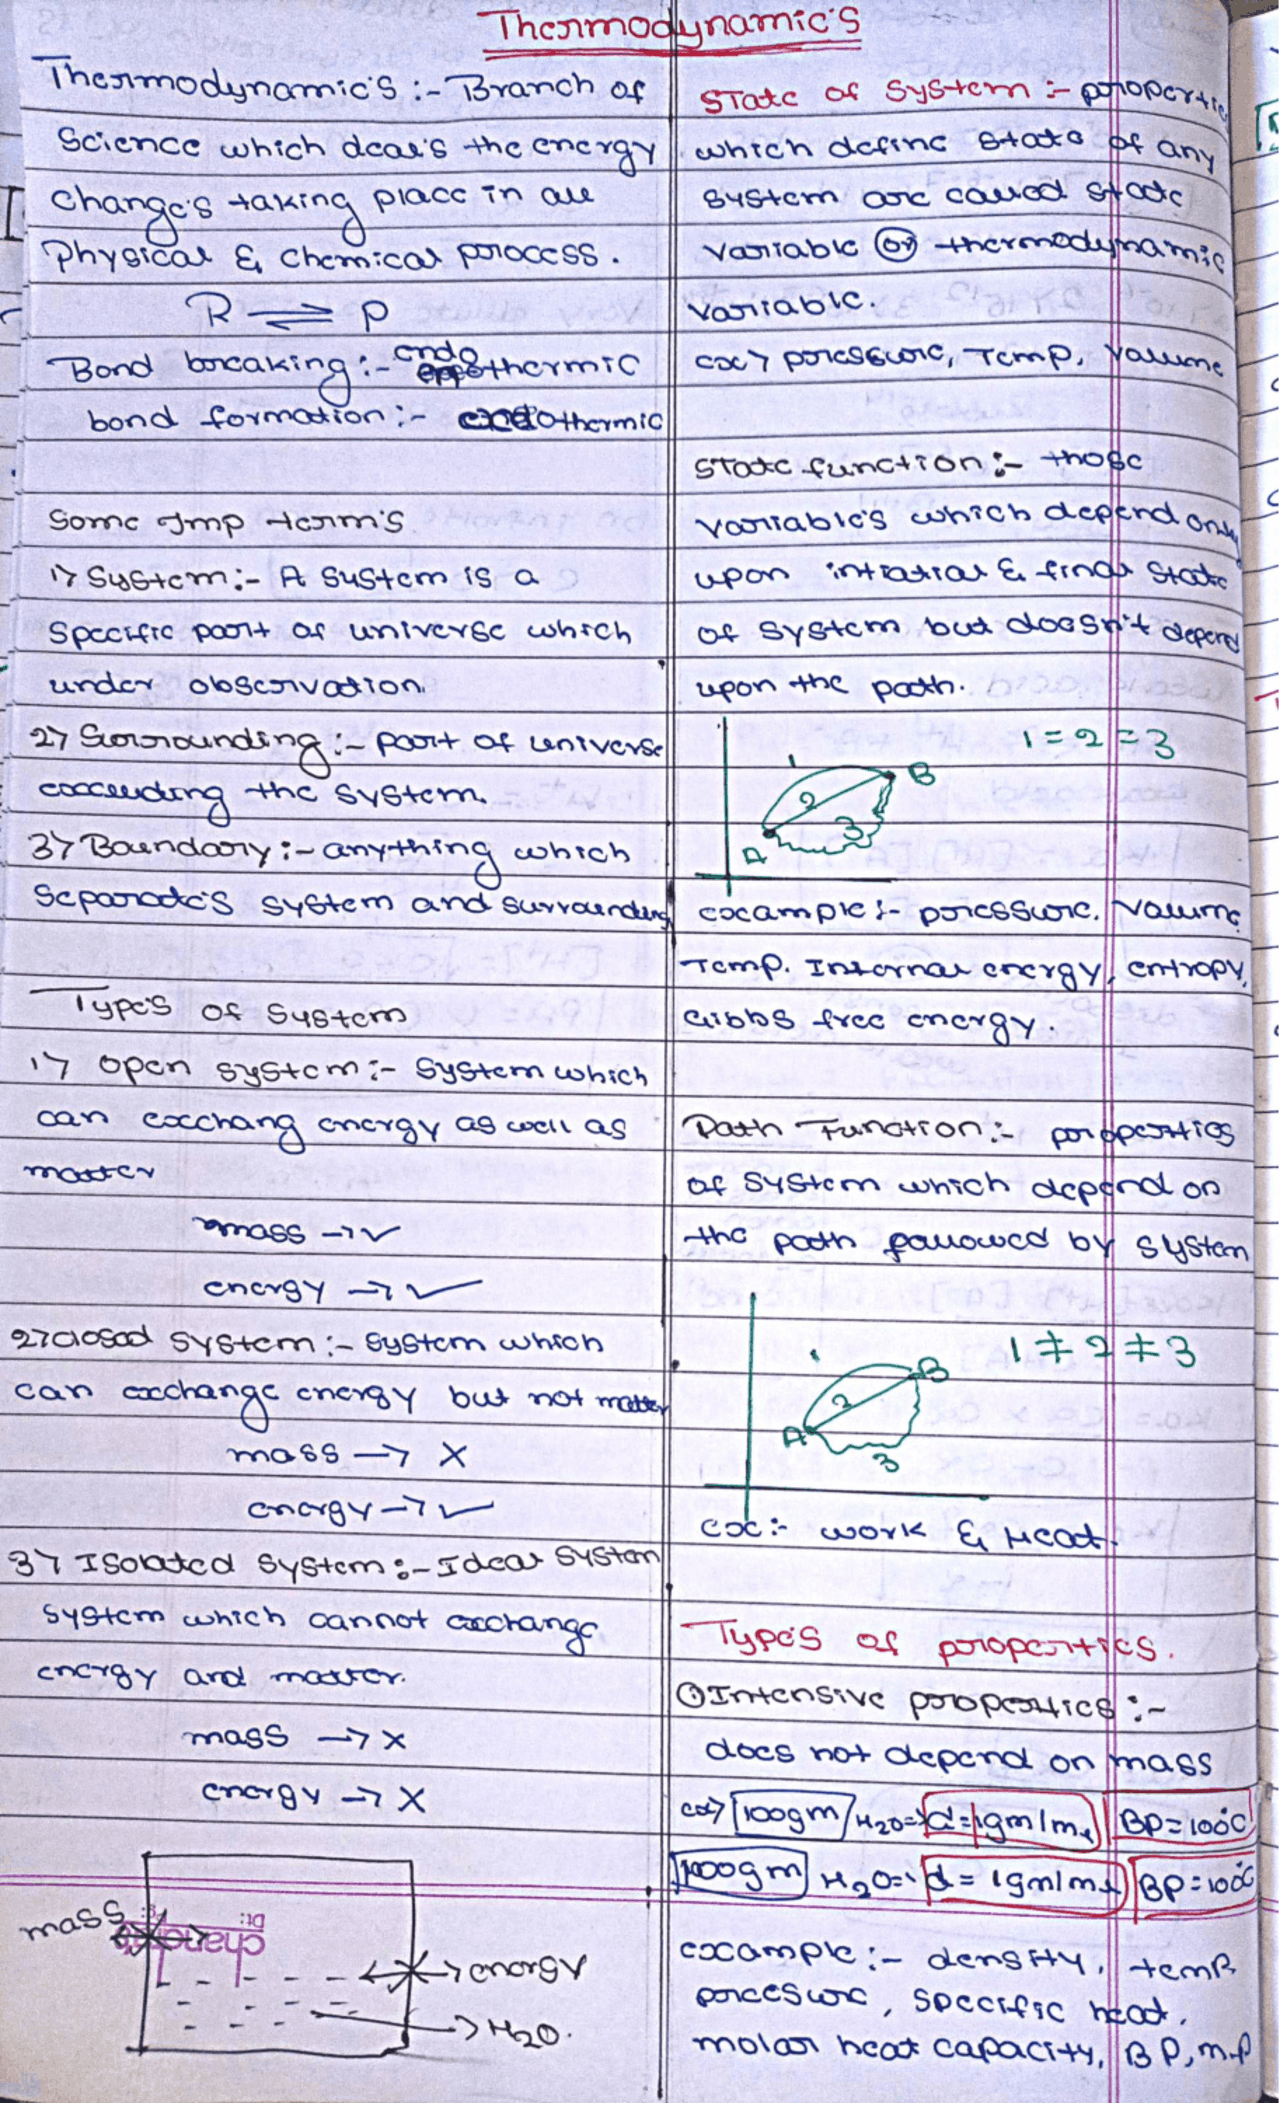 Thermodynamic's
Thermodynamic's :- Branch of
Science which deal's the energy
change's taking place in all
Physical & chemical process.
R ⇌ P
Bond breaking :- endothermic
bond formation :- exothermic
Some Imp term's
1> System :- A system is a
specific part of universe which
under observation
2> Surrounding :- part of universe
exceeding the system.
3> Boundary :- anything which
Separate's system and surrounding
Type's of system
1> open system :- system which
can exchang energy as well as
matter
mass → ✓
energy → ✓
2> closed system :- system which
can exchange energy but not matter
mass → X
energy → ✓
3> Isolated system :- Ideal system
system which cannot exchange
energy and matter.
mass → X
energy → X
mass
energy
H2O.
State of System :- propertie
which define state of any
system are called state
variable or thermodynamic
variable.
ex> pressure, Temp, Volume
State function :- those
variable's which depend only
upon intiatial & final state
of system but doesn't depend
upon the path.
1 = 2 = 3
1 B
2
3
A
example :- pressure. Volume
Temp. Internal energy, entropy,
Gibbs free energy.
Path Function :- properties
of system which depend on
the path followed by system
1 ≠ 2 ≠ 3
B
2
A
3
ex :- work & Heat.
Type's of properties.
① Intensive properties :-
does not depend on mass
ex> 100gm H2O => d = 1gm/mL BP = 100°C
1000gm H2O => d = 1gm/mL BP = 100°C
example :- density, temp
pressure, specific heat.
molar heat capacity, BP, m.p